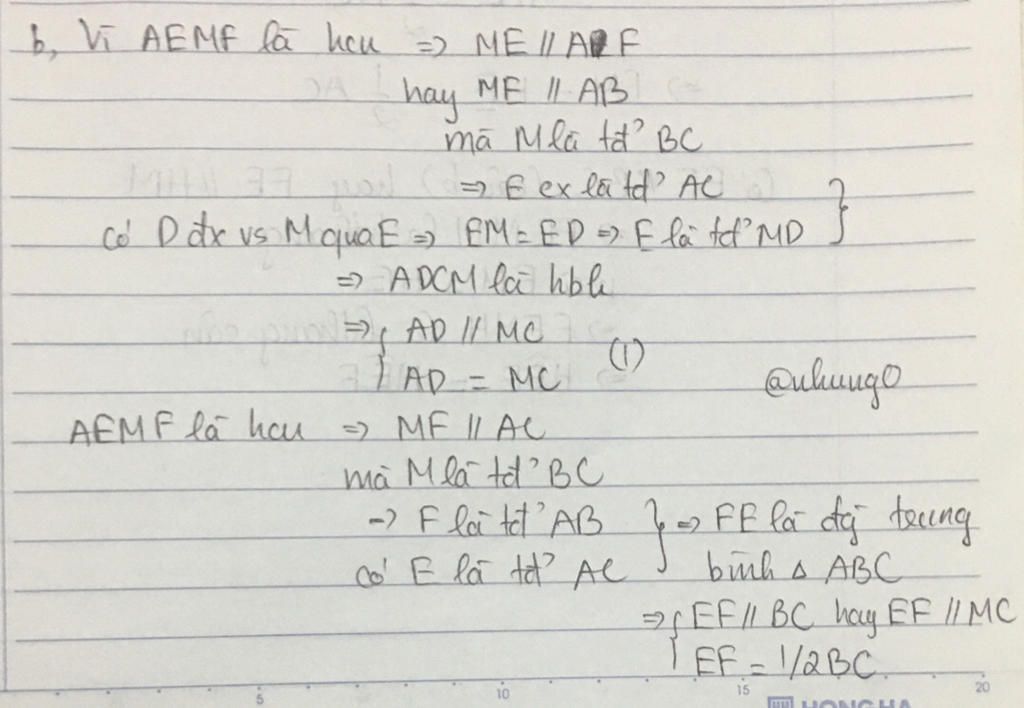 b, Vì AEMF là hcn => ME // AF
hay ME // AB
mà M là tđ' BC
=> E là tđ' AC
có D đx vs M qua E => EM = ED => E là tđ' MD
=> ADCM là hbh
=> { AD // MC
AD = MC (1)
@nhung0
AEMF là hcn => MF // AC
mà M là tđ' BC
-> F là tđ' AB } => FE là đg trung
có E là tđ' AC bình Δ ABC
=> { EF // BC hay EF // MC
EF = 1/2BC
5 10 15 20
HONG HA